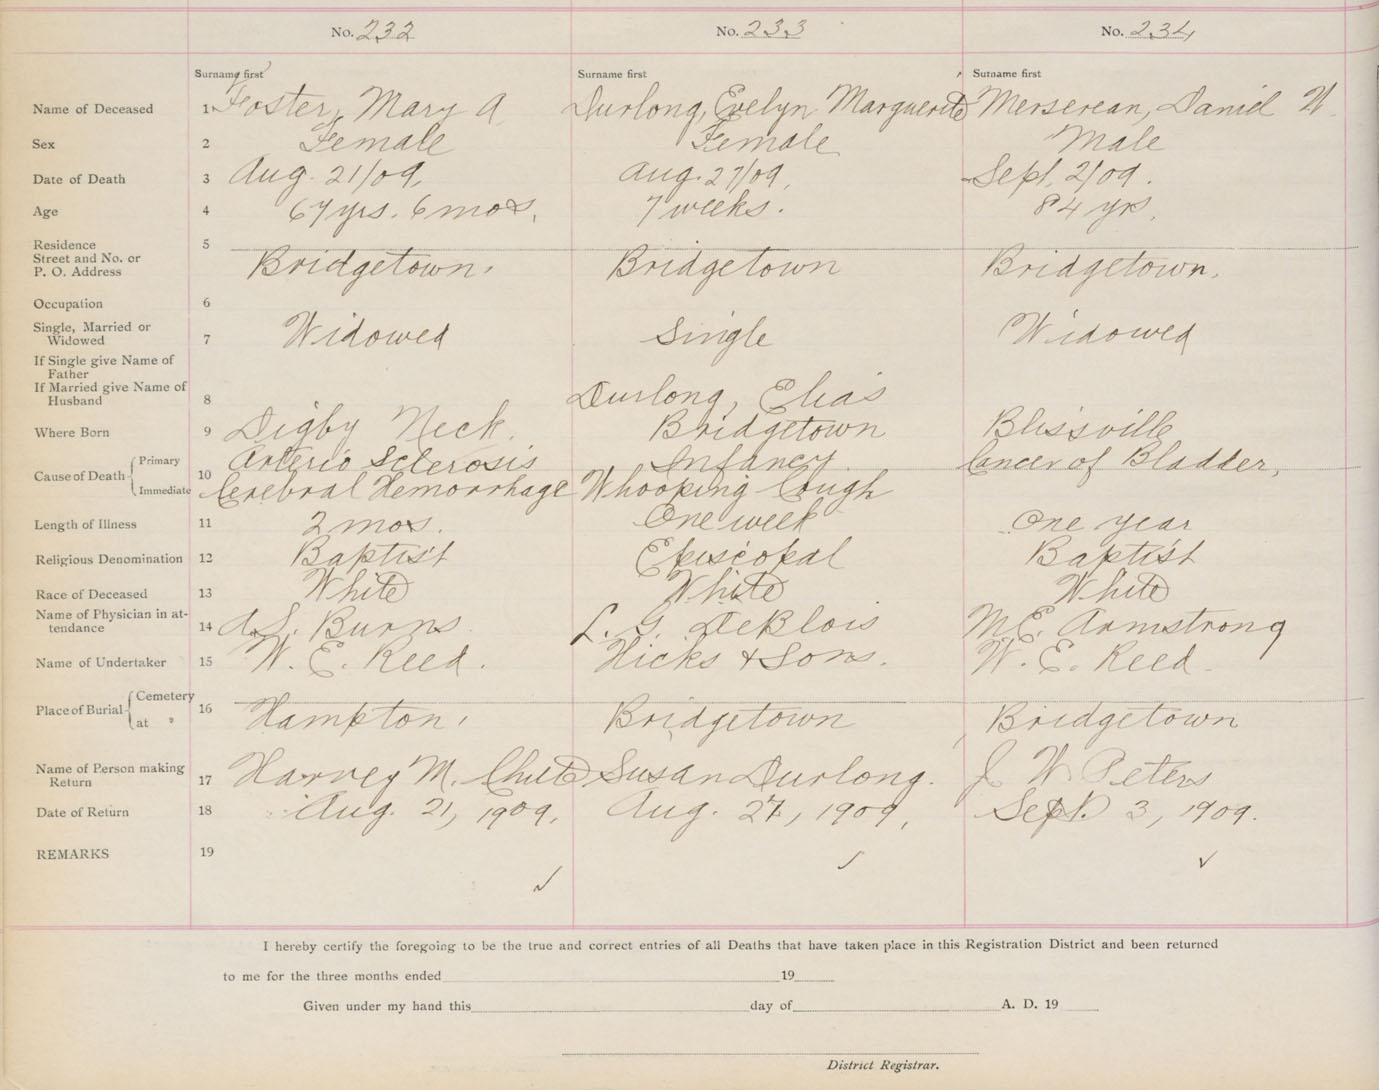 No. 232 No. 233 No. 234
Surname first Surname first Surname first
Name of Deceased 1 Foster, Mary A Durlong, Evelyn Marguerite Mersereau, Daniel W.
Sex 2 Female Female Male
Date of Death 3 Aug. 21/09. Aug. 27/09. Sept. 2/09.
Age 4 67 yrs. 6 mos. 7 weeks. 84 yrs.
Residence 5
Street and No. or
P. O. Address Bridgetown. Bridgetown Bridgetown.
Occupation 6
Single, Married or
Widowed 7 Widowed Single Widowed
If Single give Name of
Father
If Married give Name of
Husband 8 Durlong, Elias
Where Born 9 Digby Neck. Bridgetown Blissville
Cause of Death 10 Primary Arterio Sclerosis Infancy Cancer of Bladder,
Immediate Cerebral Hemorrhage Whooping Cough
Length of Illness 11 2 mos. One week One year
Religious Denomination 12 Baptist Episcopal Baptist
Race of Deceased 13 White White White
Name of Physician in at-
tendance 14 A.S. Burns L. G. DeBlois M.E. Armstrong
Name of Undertaker 15 W. E. Reed. Hicks & Sons. W. E. Reed
Place of Burial 16 Cemetery
at " Hampton, Bridgetown Bridgetown
Name of Person making
Return 17 Harvey M. Chute Susan Durlong. J W Peters
Date of Return 18 Aug. 21, 1909. Aug. 27, 1909, Sept. 3, 1909.
REMARKS 19
I hereby certify the foregoing to be the true and correct entries of all Deaths that have taken place in this Registration District and been returned
to me for the three months ended 19
Given under my hand this day of A. D. 19
District Registrar.